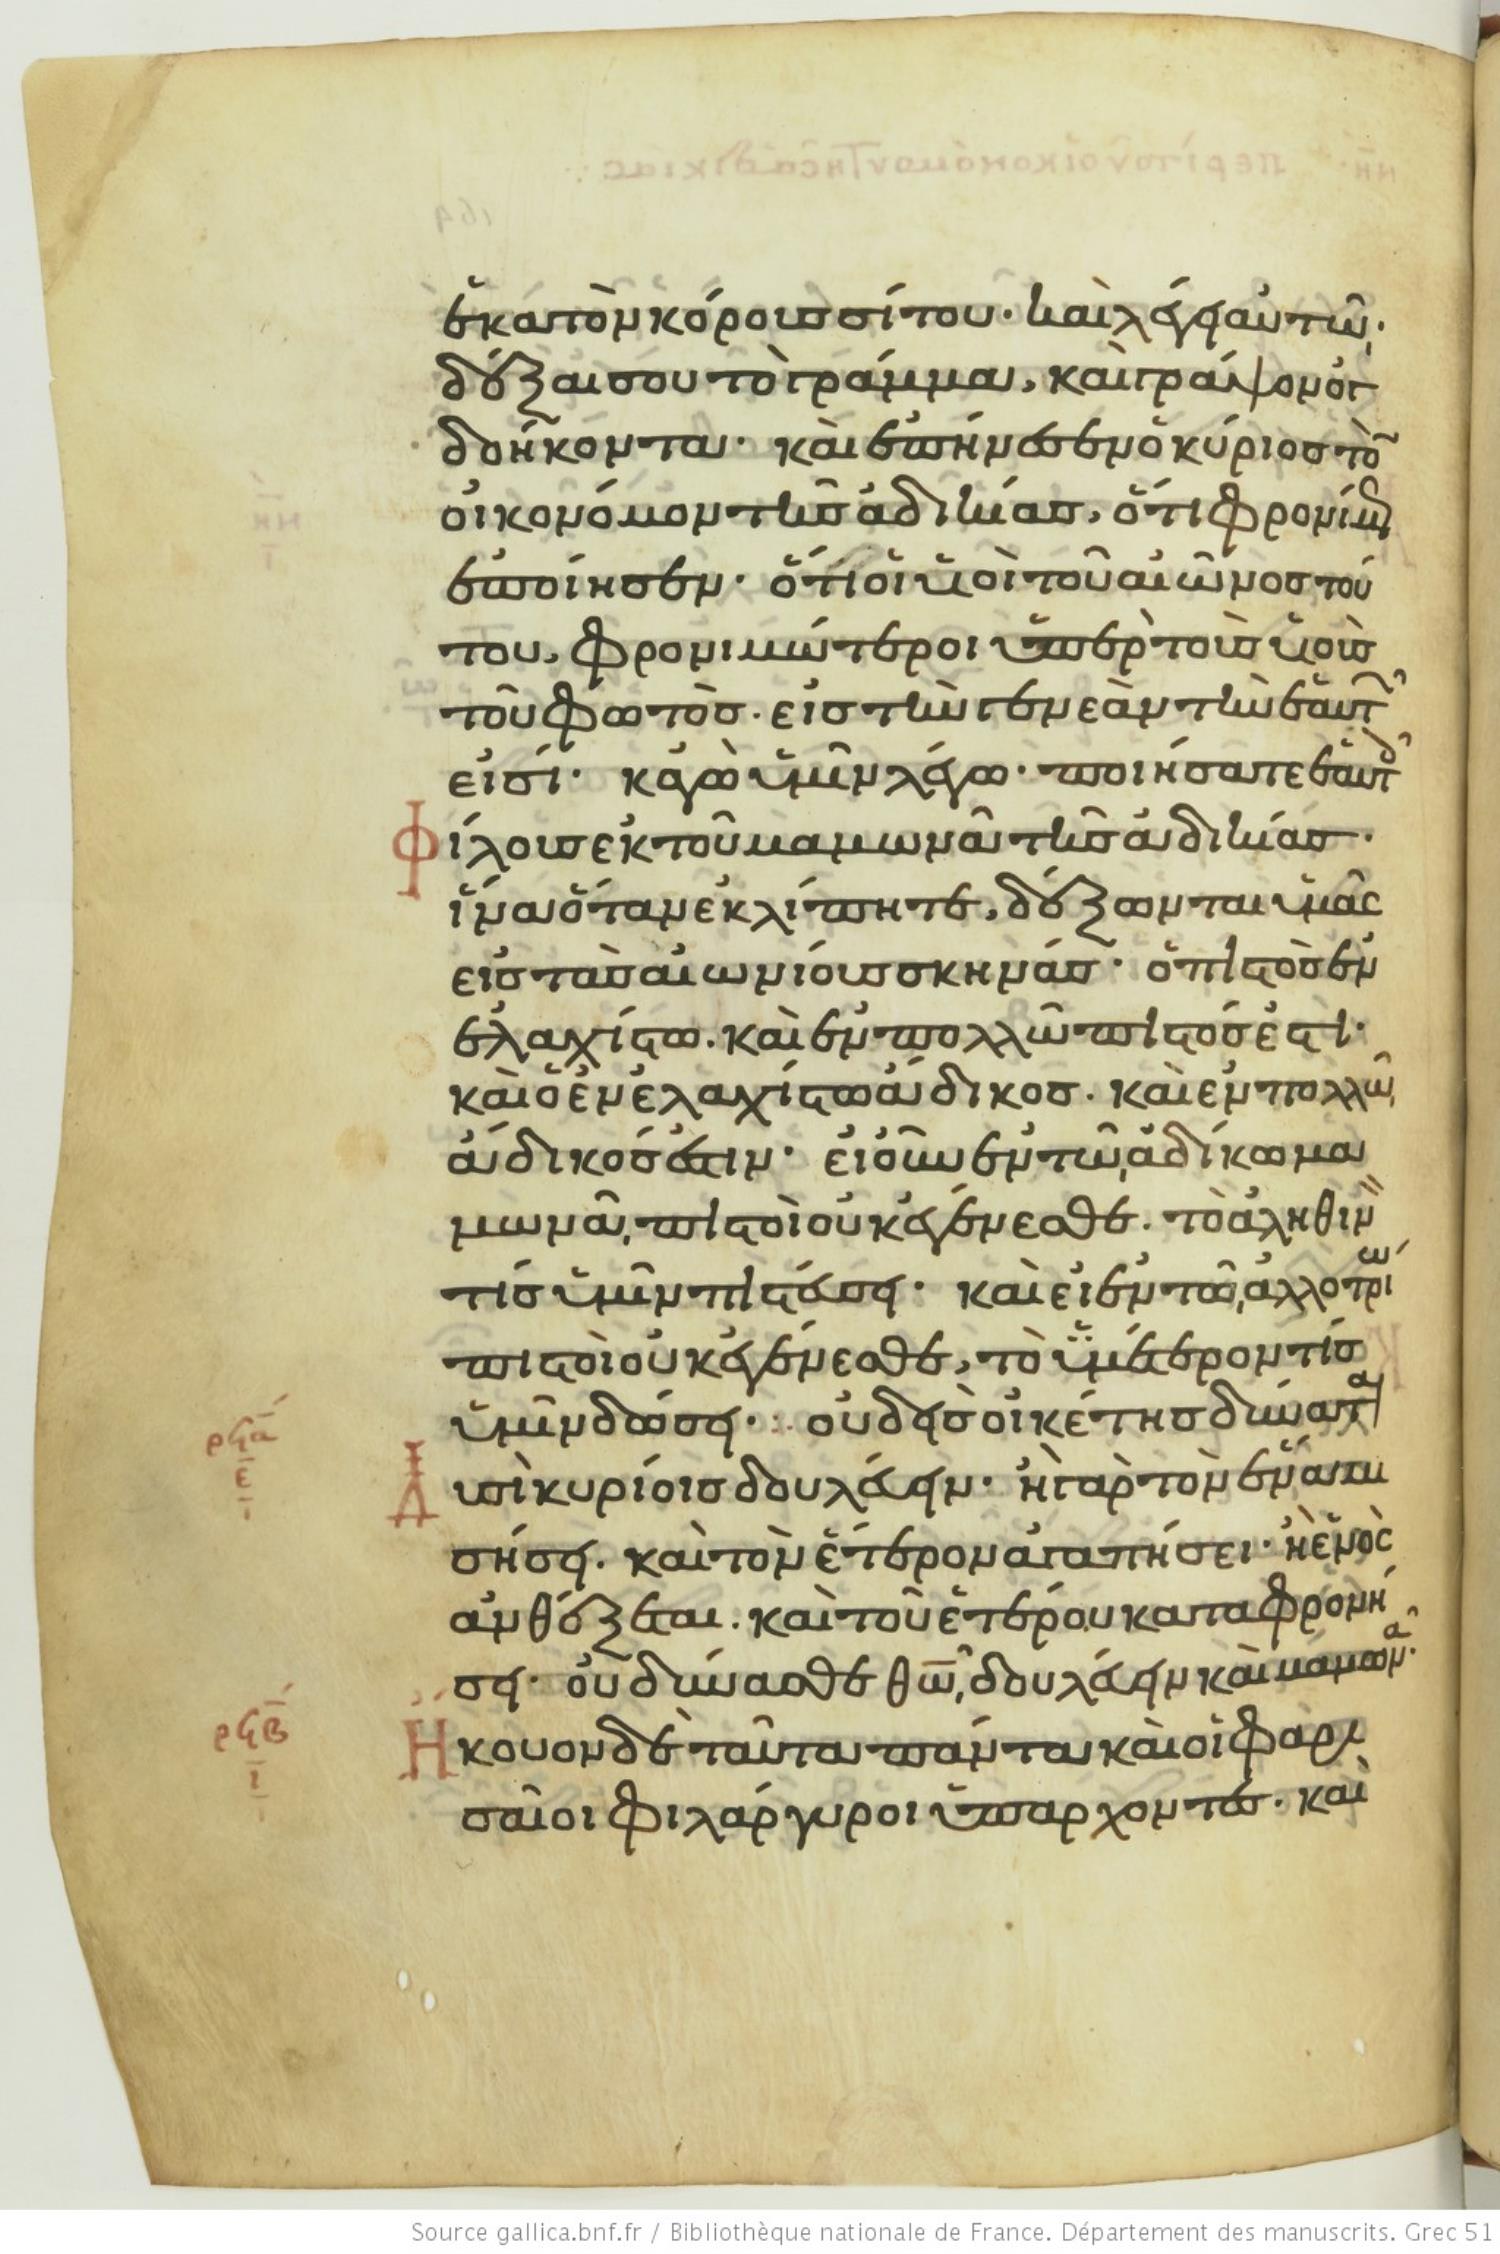 ἑκατὸν κόρους σίτου· καὶ λέγει αὐτῷ·
δέξαι σου τὸ γράμμα, καὶ γράψον ὀγ
δοήκοντα· καὶ ἐπήνεσεν ὁ κύριος τὸ
οἰκονόμον τῆς ἀδικίας, ὅτι φρονίμ
ἐποίησεν· ὅτι οἱ υἱοὶ τοῦ αἰῶνος τού
του, φρονιμώτεροι ὑπὲρ τοὺς υἱοὺς
τοῦ φωτὸς. εἰς τὴν γενεὰν τὴν ἑαυτ
εἰσί· κἀγὼ ὑμῖν λέγω· ποιήσατε ἑαυτ
Φίλους ἐκ τοῦ μαμωνᾶ τῆς ἀδικίας·
ἵνα ὅταν ἐκλίπητε, δέξωνται ὑμᾶς
εἰς τὰς αἰωνίους σκηνάς· ὁ πιστὸς ἐν
ἐλαχίστω. καὶ ἐν πολλῶ πιστός ἐστι·
καὶ ὁ ἐν ἐλαχίστω ἄδικος. καὶ ἐν πολλῶ,
ἄδικός ἐστιν· εἰ οὖν ἐν τῶ, ἀδίκω μα
μωνᾶ, πιστοὶ οὐκ ἐγένεσθε. τὸ ἀληθιν
τίς ὑμῖν πιστεύσει· καὶ εἰ ἐν τῶ, ἀλλοτρίω
πιστοὶ οὐκ ἐγένεσθε, τὸ ὑμέτερον τίς
ὑμῖν δώσει· οὐδεὶς οἰκέτης δύναται
ρϟα
ε
Δυσὶ κυρίοις δουλεύειν· ἢ γὰρ τὸν ἕνα μι
σήσει. καὶ τὸν ἕτερον ἀγαπήσει· ἢ ἑνὸς
ἀνθέξεται. καὶ τοῦ ἑτέρου καταφρονή
σει· οὐ δύνασθε θω, δουλεύειν καὶ μαμωνᾶ·
ρϟβ
ι
Ἤκουον δὲ ταῦτα πάντα καὶ οἱ φαρι
σαῖοι φιλάργυροι ὑπάρχοντες. καὶ
Source gallica.bnf.fr / Bibliothèque nationale de France. Département des manuscrits. Grec 51